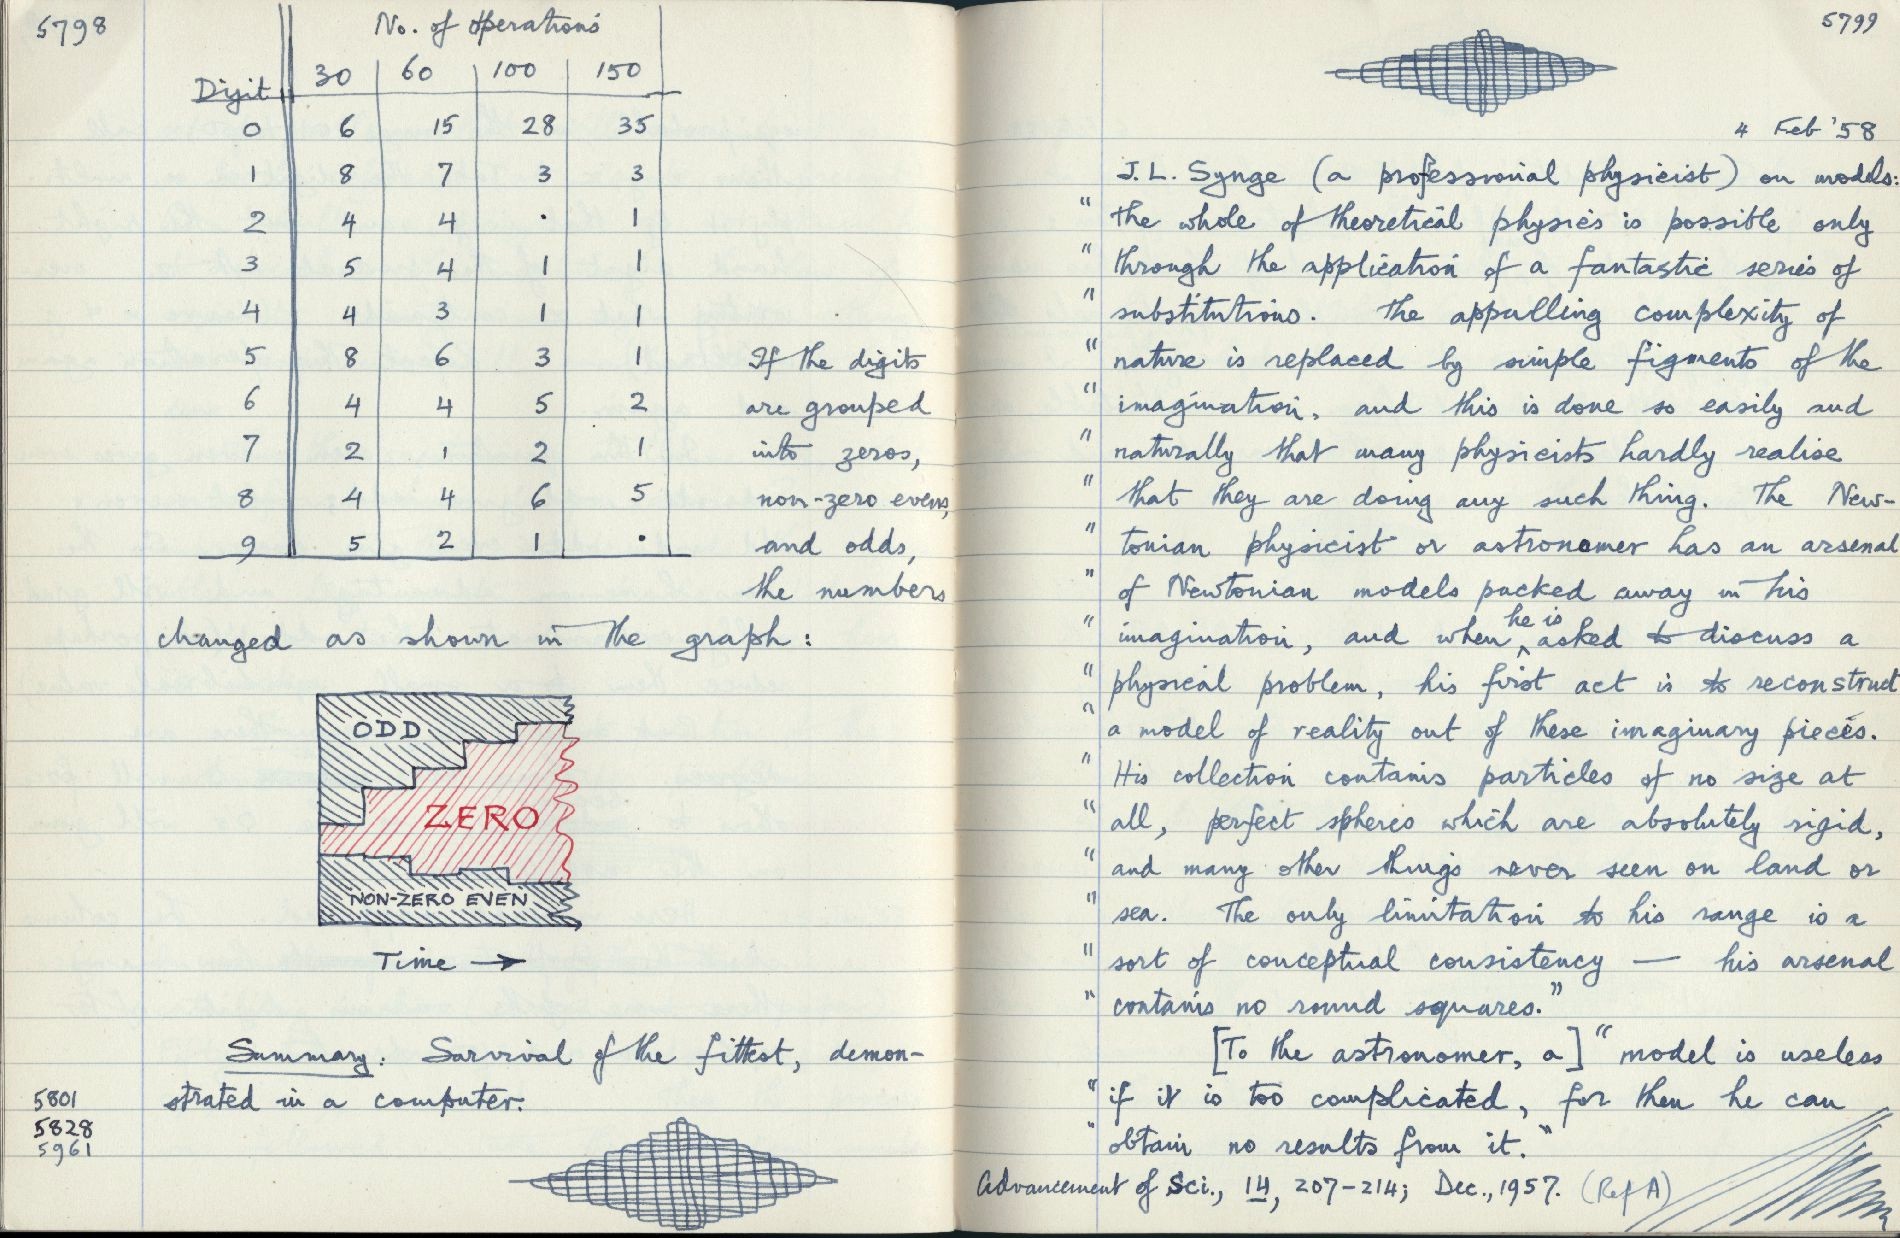 5798
No. of operations
Digit 30 60 100 150
0 6 15 28 35
1 8 7 3 3
2 4 4 · 1
3 5 4 1 1
4 4 3 1 1
5 8 6 3 1
6 4 4 5 2
7 2 1 2 1
8 4 4 6 5
9 5 2 1 ·
If the digits
are grouped
into zeros,
non-zero evens,
and odds,
the numbers
changed as shown in the graph:
ODD
ZERO
NON-ZERO EVEN
Time →
Summary: Survival of the fittest, demon-
strated in a computer.
5801
5828
5961
5799
4 Feb '58
J. L. Synge (a professional physicist) on models:
"the whole of theoretical physics is possible only
"through the application of a fantastic series of
"substitutions. The appalling complexity of
"nature is replaced by simple figments of the
"imagination, and this is done so easily and
"naturally that many physicists hardly realise
"that they are doing any such thing. The New-
"tonian physicist or astronomer has an arsenal
"of Newtonian models packed away in his
"imagination, and when he is asked to discuss a
"physical problem, his first act is to reconstruct
"a model of reality out of these imaginary pieces.
"His collection contains particles of no size at
"all, perfect spheres which are absolutely rigid,
"and many other things never seen on land or
"sea. The only limitation to his range is a
"sort of conceptual consistency — his arsenal
"contains no round squares."
[To the astronomer, a] "model is useless
"if it is too complicated, for then he can
"obtain no results from it."
Advancement of Sci., 14, 207-214; Dec., 1957. (Ref A)